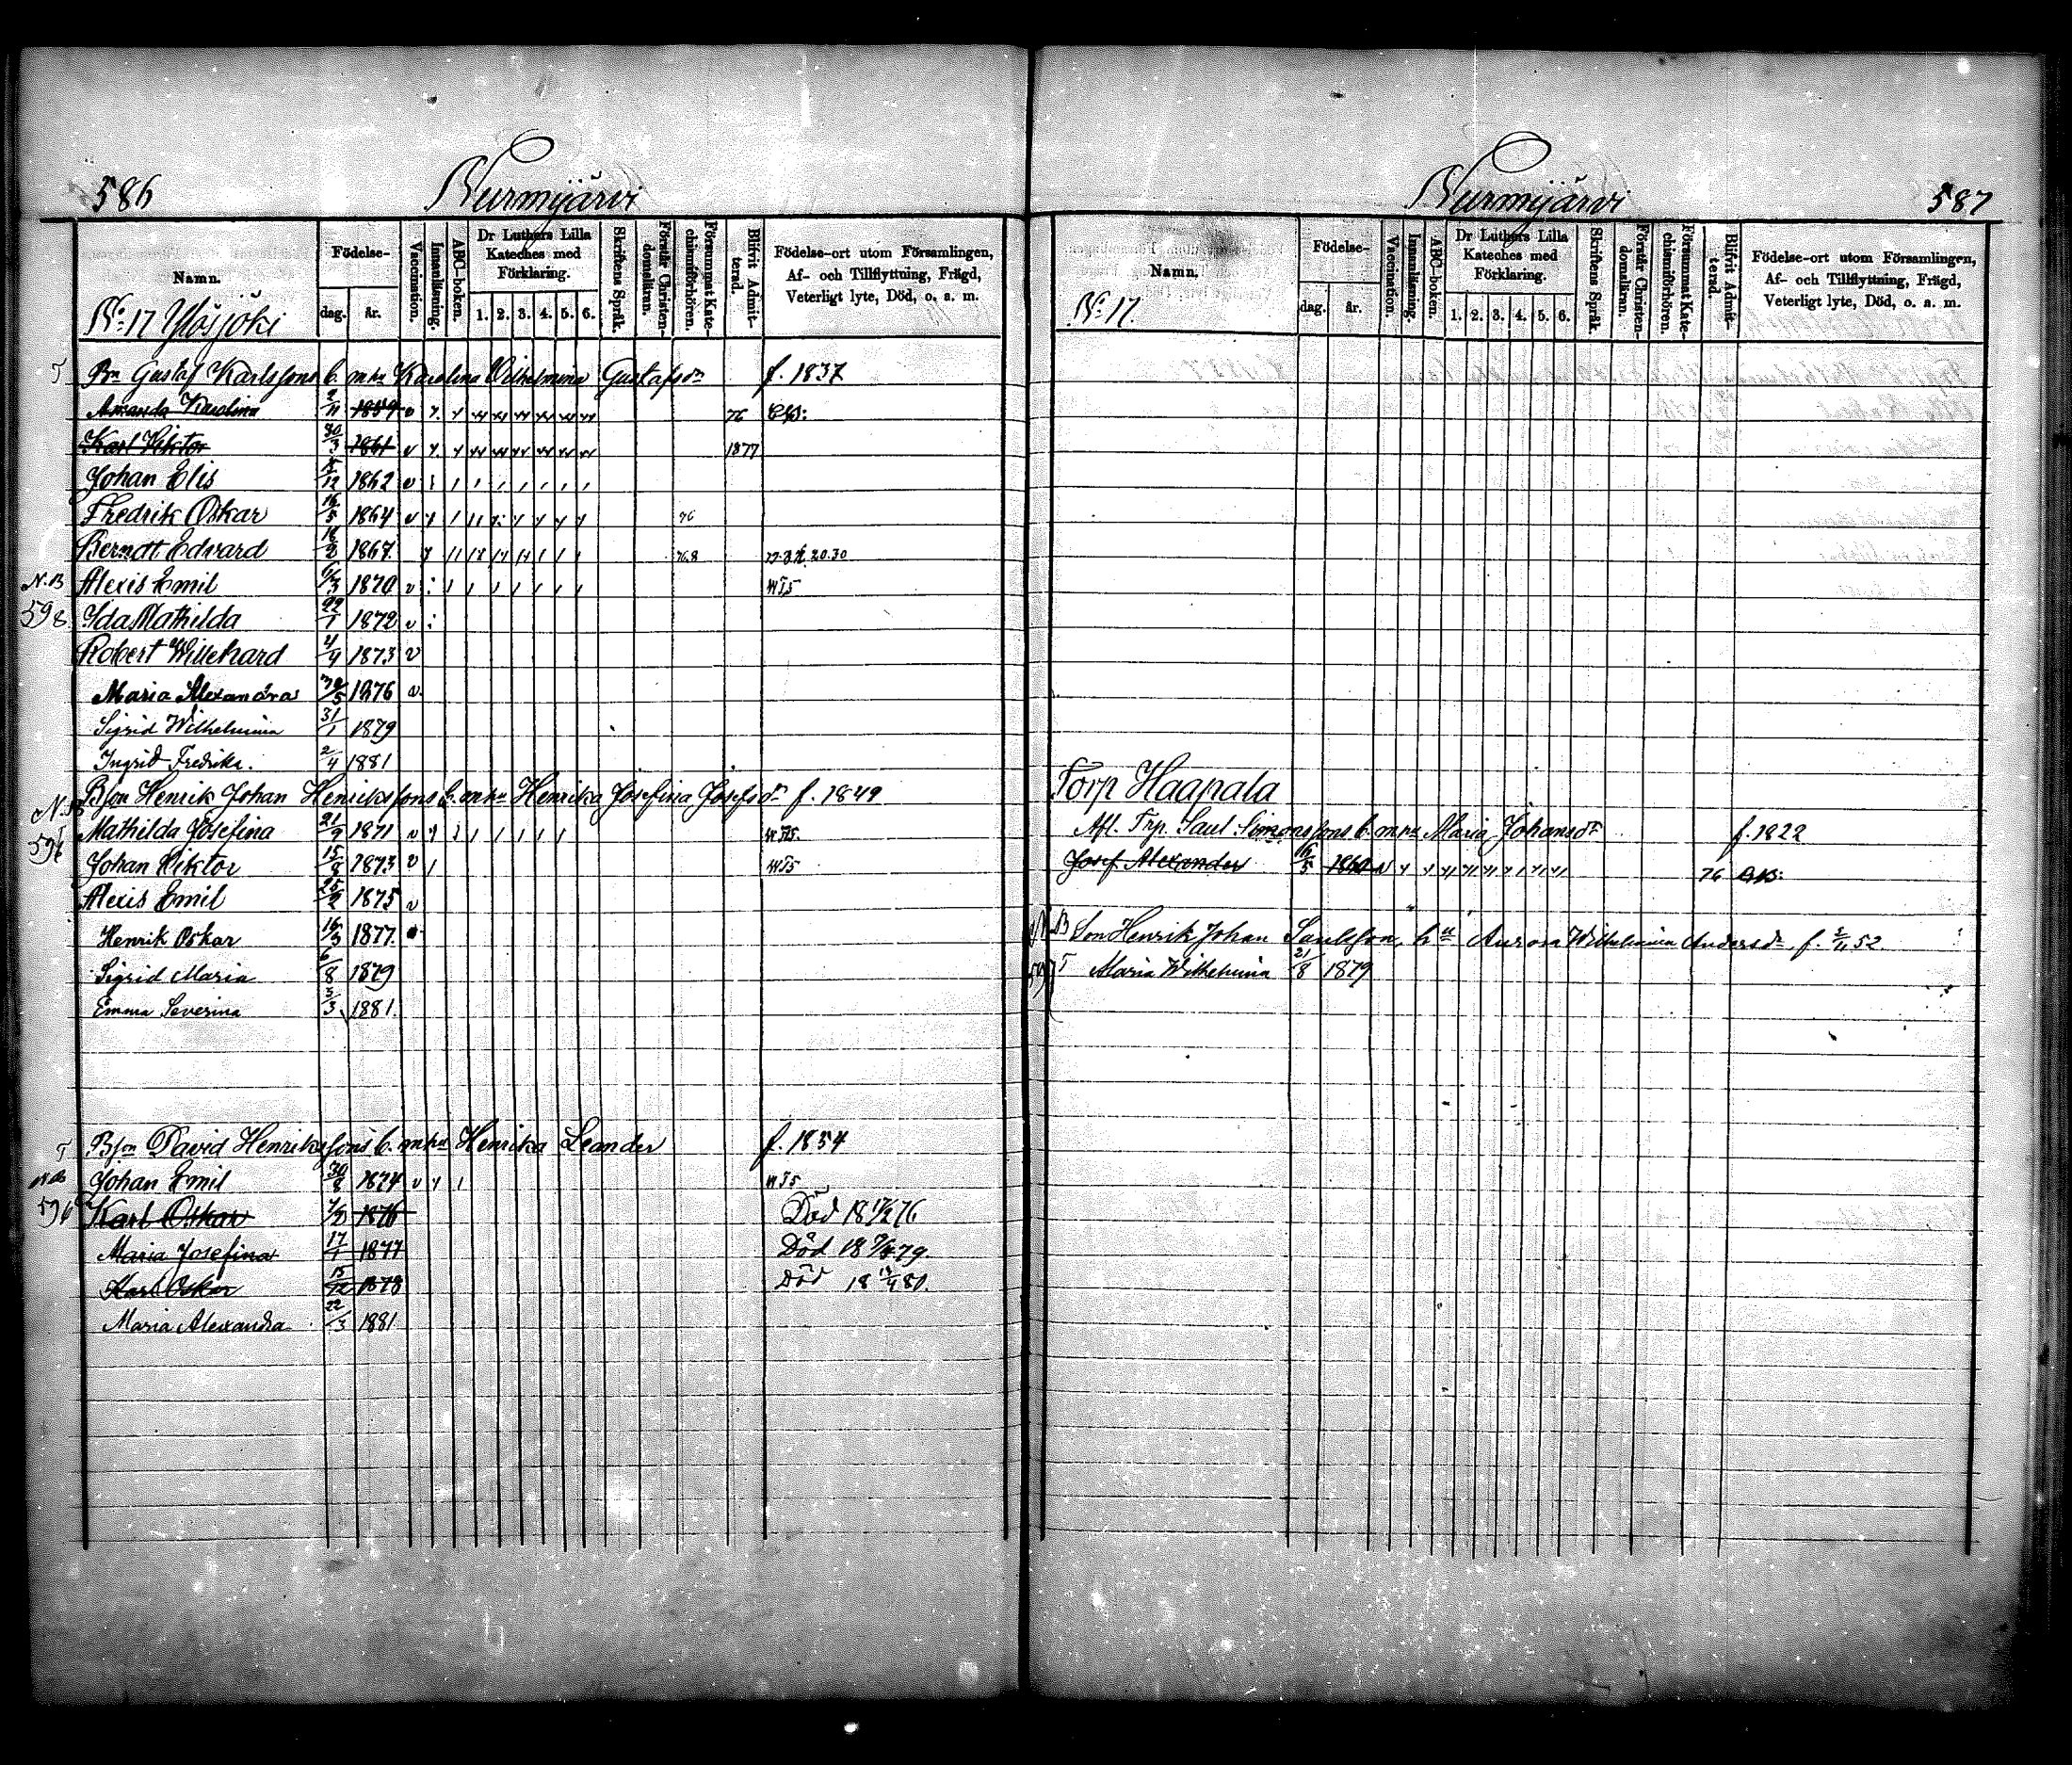 586 Nurmijärvi
Namn.
Födelse-
dag. år.
Vaccination.
Innanläsning.
ABC-boken.
Dr Luthers Lilla Kateches med Förklaring.
1. 2. 3. 4. 5. 6.
Skriftens Språk.
Förstår Christendomsläran.
Försummat Katechismiförhören.
Blifvit Admitterad.
Födelse-ort utom Församlingen, Af- och Tillflyttning, Frägd, Veterligt lyte, Död, o. a. m.
No: 17 Ylösjoki
Bn Gustaf Karlssons b. m. hu Karolina Vilhelmina Gustafsdr f. 1837
Amanda Karolina 2/11 1859 76
Karl Viktor 30/3 1861 1877
Johan Elis 1862
Fredrik Oskar 16/5 1864 76
Berndt Edvard 1867 76.8
N.B Alexis Emil 6/3 1870
598 Ida Mathilda 22/1 1872
Robert Willehard 4/4 1873
Maria Alexandra 1876
Sigrid Wilhelmina 31/1 1879
Ingrid Fredrika. 2/4 1881
Bson Henrik Johan Henrikssons b. m hu Henrika Josefina Josefsdr f. 1849
N.B
Mathilda Josefina 21/9 1871
Johan Viktor 15/8 1873
Alexis Emil 25/2 1875
Henrik Oskar 16/3 1877.
Sigrid Maria 6/8 1879
Emma Severina 3/3 1881.
Bson David Henrikssons b. m hu Henrika Leander f. 1854
Johan Emil 30/8 1874
596 Karl Oskar 1876 Död 76
Maria Josefina 17/1 1877 Död 79.
Karl Oskar 15/12 1878 Död 80.
Maria Alexandra 22/3 1881
Nurmijärvi 587
Namn.
Födelse-
dag. år.
Vaccination.
Innanläsning.
ABC-boken.
Dr Luthers Lilla Kateches med Förklaring.
1. 2. 3. 4. 5. 6.
Skriftens Språk.
Förstår Christendomsläran.
Försummat Katechismiförhören.
Blifvit Admitterad.
Födelse-ort utom Församlingen, Af- och Tillflyttning, Frägd, Veterligt lyte, Död, o. a. m.
No: 17.
Torp Haapala
Afl. Trp. Saul Simonssons b. m hu Maria Johansdr f. 1822
Josef Alexander 16/5 1860 76
Son Henrik Johan Saulsson, hu Aurora Wilhelmina Andersdr f. 2/11 52
Maria Wilhelmina 21/8 1879